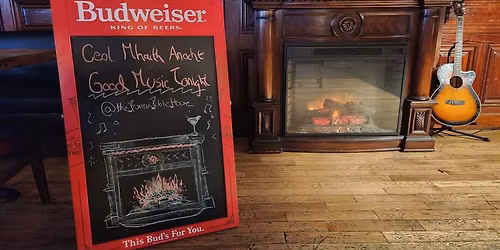 Budweiser
KING OF BEERS
Ceol Mhaith Anocht
Good Music Tonight
This Bud's For You.